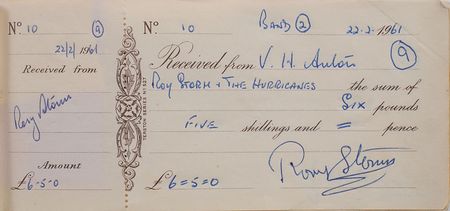 No. 10 9
22/2/1961
Received from
Rory Storm
Amount
£6-5-0
TERSTON SERIES No 527
No. 10 BAND 2 22-2-1961
Received from V. H. Anton 9
RORY STORM & THE HURRICANES the sum of
SIX pounds
FIVE shillings and = pence
Rory Storm
£6=5=0